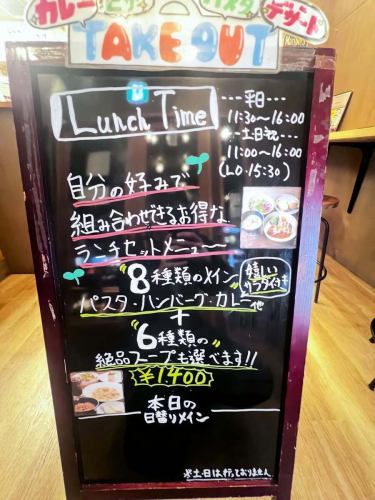 カレー ピザ パスタ デザート
TAKE OUT
Lunch Time
---平日---
11:30〜16:00
---土日祝---
11:00〜16:00
(L.O.15:30)
自分の好みで
組み合わせできるお得な
ランチセットメニュー
8種類のメイン
嬉しい
サラダ付き
パスタ・ハンバーグ・カレー他
+
6種類の
絶品スープも選べます!!
¥1,400
本日の
日替りメイン
※土・日は行っておりません